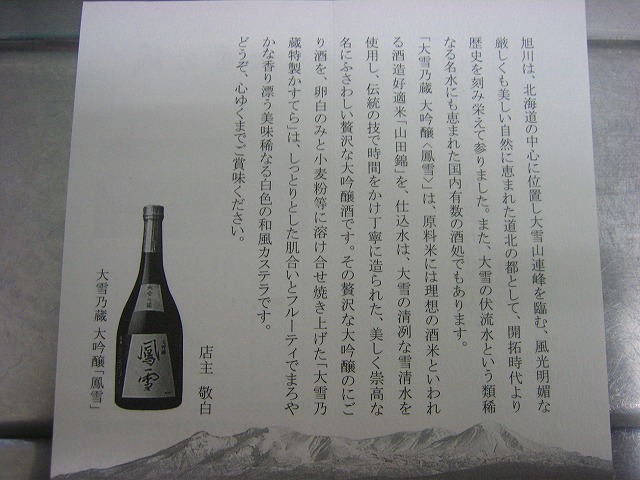 旭川は、北海道の中心に位置し大雪山連峰を臨む、風光明媚な
厳しくも美しい自然に恵まれた道北の都として、開拓時代より
歴史を刻み栄えて参りました。また、大雪の伏流水という類稀
なる名水にも恵まれた国内有数の酒処でもあります。
「大雪乃蔵 大吟醸〈鳳雪〉」は、原料米には理想の酒米といわれ
る酒造好適米「山田錦」を、仕込水は、大雪の清冽な雪清水を
使用し、伝統の技で時間をかけ丁寧に造られた、美しく崇高な
名にふさわしい贅沢な大吟醸酒です。その贅沢な大吟醸のにご
り酒を、卵白のみと小麦粉等に溶け合せ焼き上げた「大雪乃
蔵特製かすてら」は、しっとりとした肌合いとフルーティでまろや
かな香り漂う美味稀なる白色の和風カステラです。
どうぞ、心ゆくまでご賞味ください。
店主 敬白
鳳雪
大雪乃蔵 大吟醸「鳳雪」